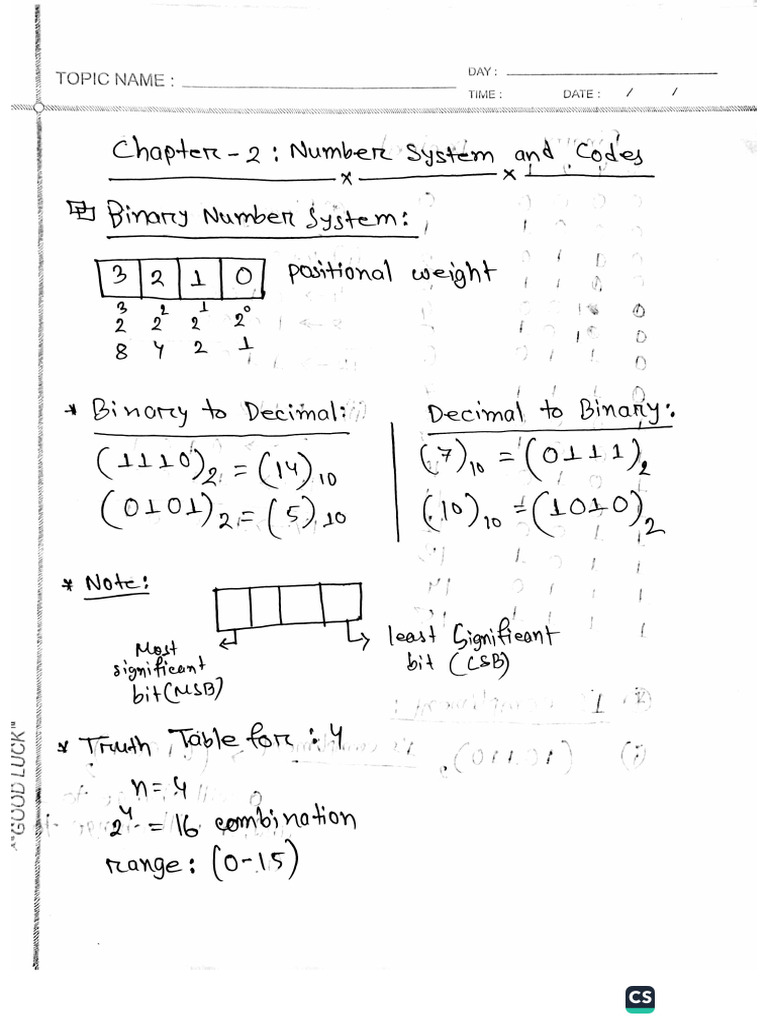 TOPIC NAME :
DAY :
TIME : DATE : / /
Chapter - 2 : Number System and Codes
Binary Number System:
3 2 1 0 positional weight
2³ 2² 2¹ 2⁰
8 4 2 1
* Binary to Decimal:
(1110)₂ = (14)₁₀
(0101)₂ = (5)₁₀
Decimal to Binary:
(7)₁₀ = (0111)₂
(10)₁₀ = (1010)₂
* Note:
Most
significant
bit (MSB)
least Significant
bit (LSB)
* Truth Table for : 4
n = 4
2⁴ = 16 combination
range : (0-15)
"GOOD LUCK"
CS